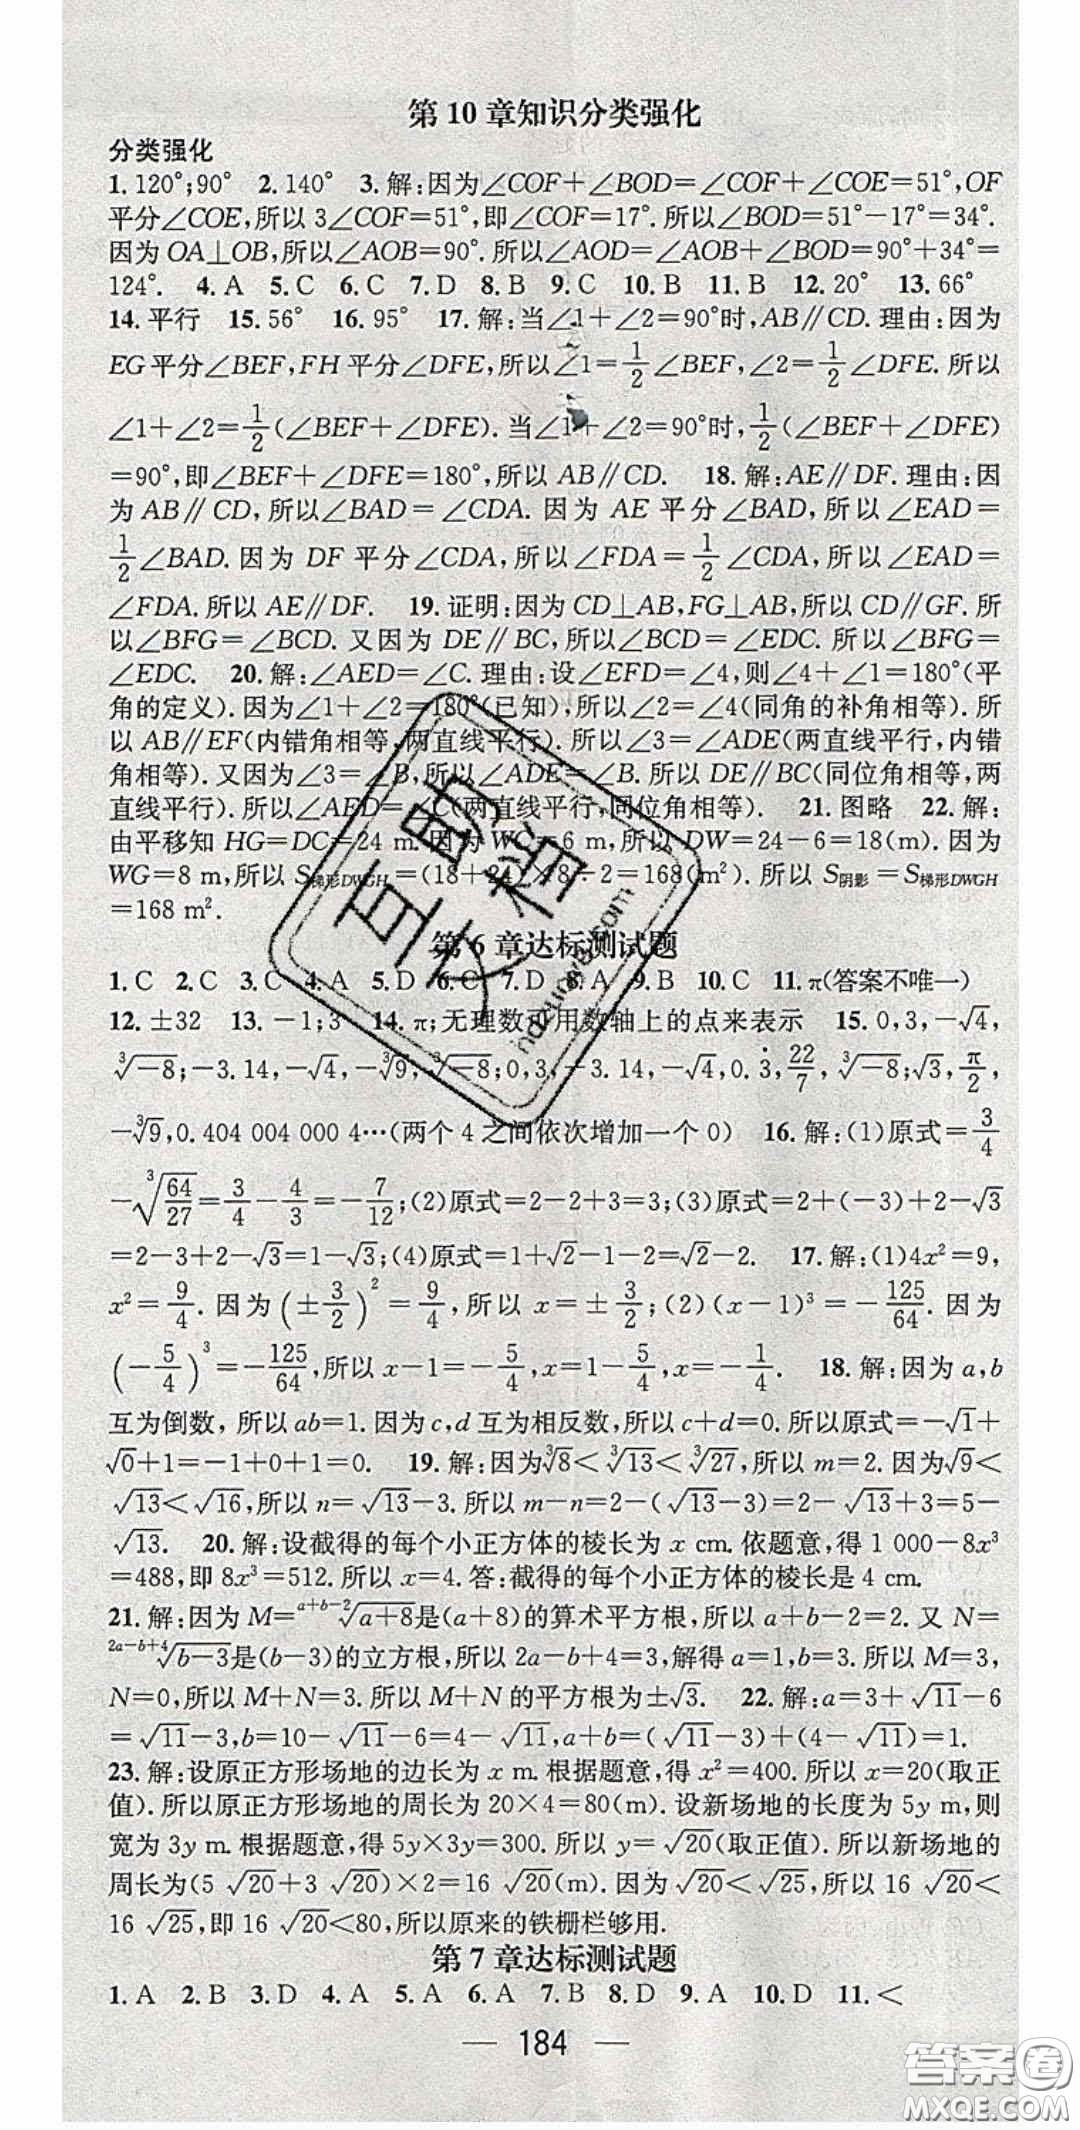 第 10 章知识分类强化
分类强化
1. 120°;90° 2. 140° 3. 解:因为∠COF+∠BOD=∠COF+∠COE=51°,OF
平分∠COE,所以 3∠COF=51°,即∠COF=17°.所以∠BOD=51°-17°=34°.
因为 OA⊥OB,所以∠AOB=90°.所以∠AOD=∠AOB+∠BOD=90°+34°=
124°. 4. A 5. C 6. C 7. D 8. B 9. C 10. B 11. B 12. 20° 13. 66°
14. 平行 15. 56° 16. 95° 17. 解:当∠1+∠2=90°时,AB∥CD.理由:因为
EG平分∠BEF,FH平分∠DFE,所以∠1=1/2∠BEF,∠2=1/2∠DFE.所以
∠1+∠2=1/2(∠BEF+∠DFE).当∠1+∠2=90°时,1/2(∠BEF+∠DFE)
=90°,即∠BEF+∠DFE=180°,所以 AB∥CD. 18. 解:AE∥DF.理由:因
为 AB∥CD,所以∠BAD=∠CDA.因为 AE 平分∠BAD,所以∠EAD=
1/2∠BAD.因为 DF 平分∠CDA,所以∠FDA=1/2∠CDA,所以∠EAD=
∠FDA.所以 AE∥DF. 19. 证明:因为 CD⊥AB,FG⊥AB,所以 CD∥GF.所
以∠BFG=∠BCD.又因为 DE∥BC,所以∠BCD=∠EDC.所以∠BFG=
∠EDC. 20. 解:∠AED=∠C.理由:设∠EFD=∠4,则∠4+∠1=180°(平
角的定义).因为∠1+∠2=180°(已知),所以∠2=∠4(同角的补角相等).所
以 AB∥EF(内错角相等,两直线平行).所以∠3=∠ADE(两直线平行,内错
角相等).又因为∠3=∠B,所以∠ADE=∠B.所以 DE∥BC(同位角相等,两
直线平行).所以∠AED=∠C(两直线平行,同位角相等). 21. 图略 22. 解:
由平移知 HG=DC=24 m.因为 WC=6 m,所以 DW=24-6=18(m).因为
WG=8 m,所以 S梯形DWGH=(18+24)×8÷2=168(m²).所以 S阴影=S梯形DWGH
=168 m².
第 6 章达标测试题
1. C 2. C 3. C 4. A 5. D 6. C 7. D 8. A 9. B 10. C 11. π(答案不唯一)
12. ±32 13. -1;3 14. π;无理数可用数轴上的点来表示 15. 0,3,-√4,
∛-8;-3.14,-√4,-∛9,∛-8;0,3,-3.14,-√4,0.3̇,22/7,∛-8;√3,π/2,
-∛9,0.404 004 000 4…(两个 4 之间依次增加一个 0) 16. 解:(1)原式=3/4
-∛(64/27)=3/4-4/3=-7/12;(2)原式=2-2+3=3;(3)原式=2+(-3)+2-√3
=2-3+2-√3=1-√3;(4)原式=1+√2-1-2=√2-2. 17. 解:(1)4x²=9,
x²=9/4.因为(±3/2)²=9/4,所以 x=±3/2;(2)(x-1)³=-125/64.因为
(-5/4)³=-125/64,所以 x-1=-5/4,x=1-5/4,x=-1/4. 18. 解:因为 a,b
互为倒数,所以 ab=1.因为 c,d 互为相反数,所以 c+d=0.所以原式=-√1+
√0+1=-1+0+1=0. 19. 解:因为∛8<∛13<∛27,所以 m=2.因为√9<
√13<√16,所以 n=√13-3.所以 m-n=2-(√13-3)=2-√13+3=5-
√13. 20. 解:设截得的每个小正方体的棱长为 x cm.依题意,得 1 000-8x³
=488,即 8x³=512.所以 x=4.答:截得的每个小正方体的棱长是 4 cm.
21. 解:因为 M=ᵃ⁺ᵇ⁻²√a+8是(a+8)的算术平方根,所以 a+b-2=2.又 N=
²ᵃ⁻ᵇ⁺⁴√b-3是(b-3)的立方根,所以 2a-b+4=3,解得 a=1,b=3.所以 M=3,
N=0,所以 M+N=3.所以 M+N 的平方根为±√3. 22. 解:a=3+√11-6
=√11-3,b=10-√11-6=4-√11,a+b=(√11-3)+(4-√11)=1.
23. 解:设原正方形场地的边长为 x m.根据题意,得 x²=400.所以 x=20(取正
值).所以原正方形场地的周长为 20×4=80(m).设新场地的长度为 5y m,则
宽为 3y m.根据题意,得 5y×3y=300.所以 y=√20(取正值).所以新场地的
周长为(5√20+3√20)×2=16√20(m).因为√20<√25,所以 16√20<
16√25,即 16√20<80,所以原来的铁栅栏够用.
第 7 章达标测试题
1. A 2. B 3. D 4. A 5. A 6. A 7. B 8. D 9. A 10. D 11. <
— 184 —
答案圈
MXQE.COM